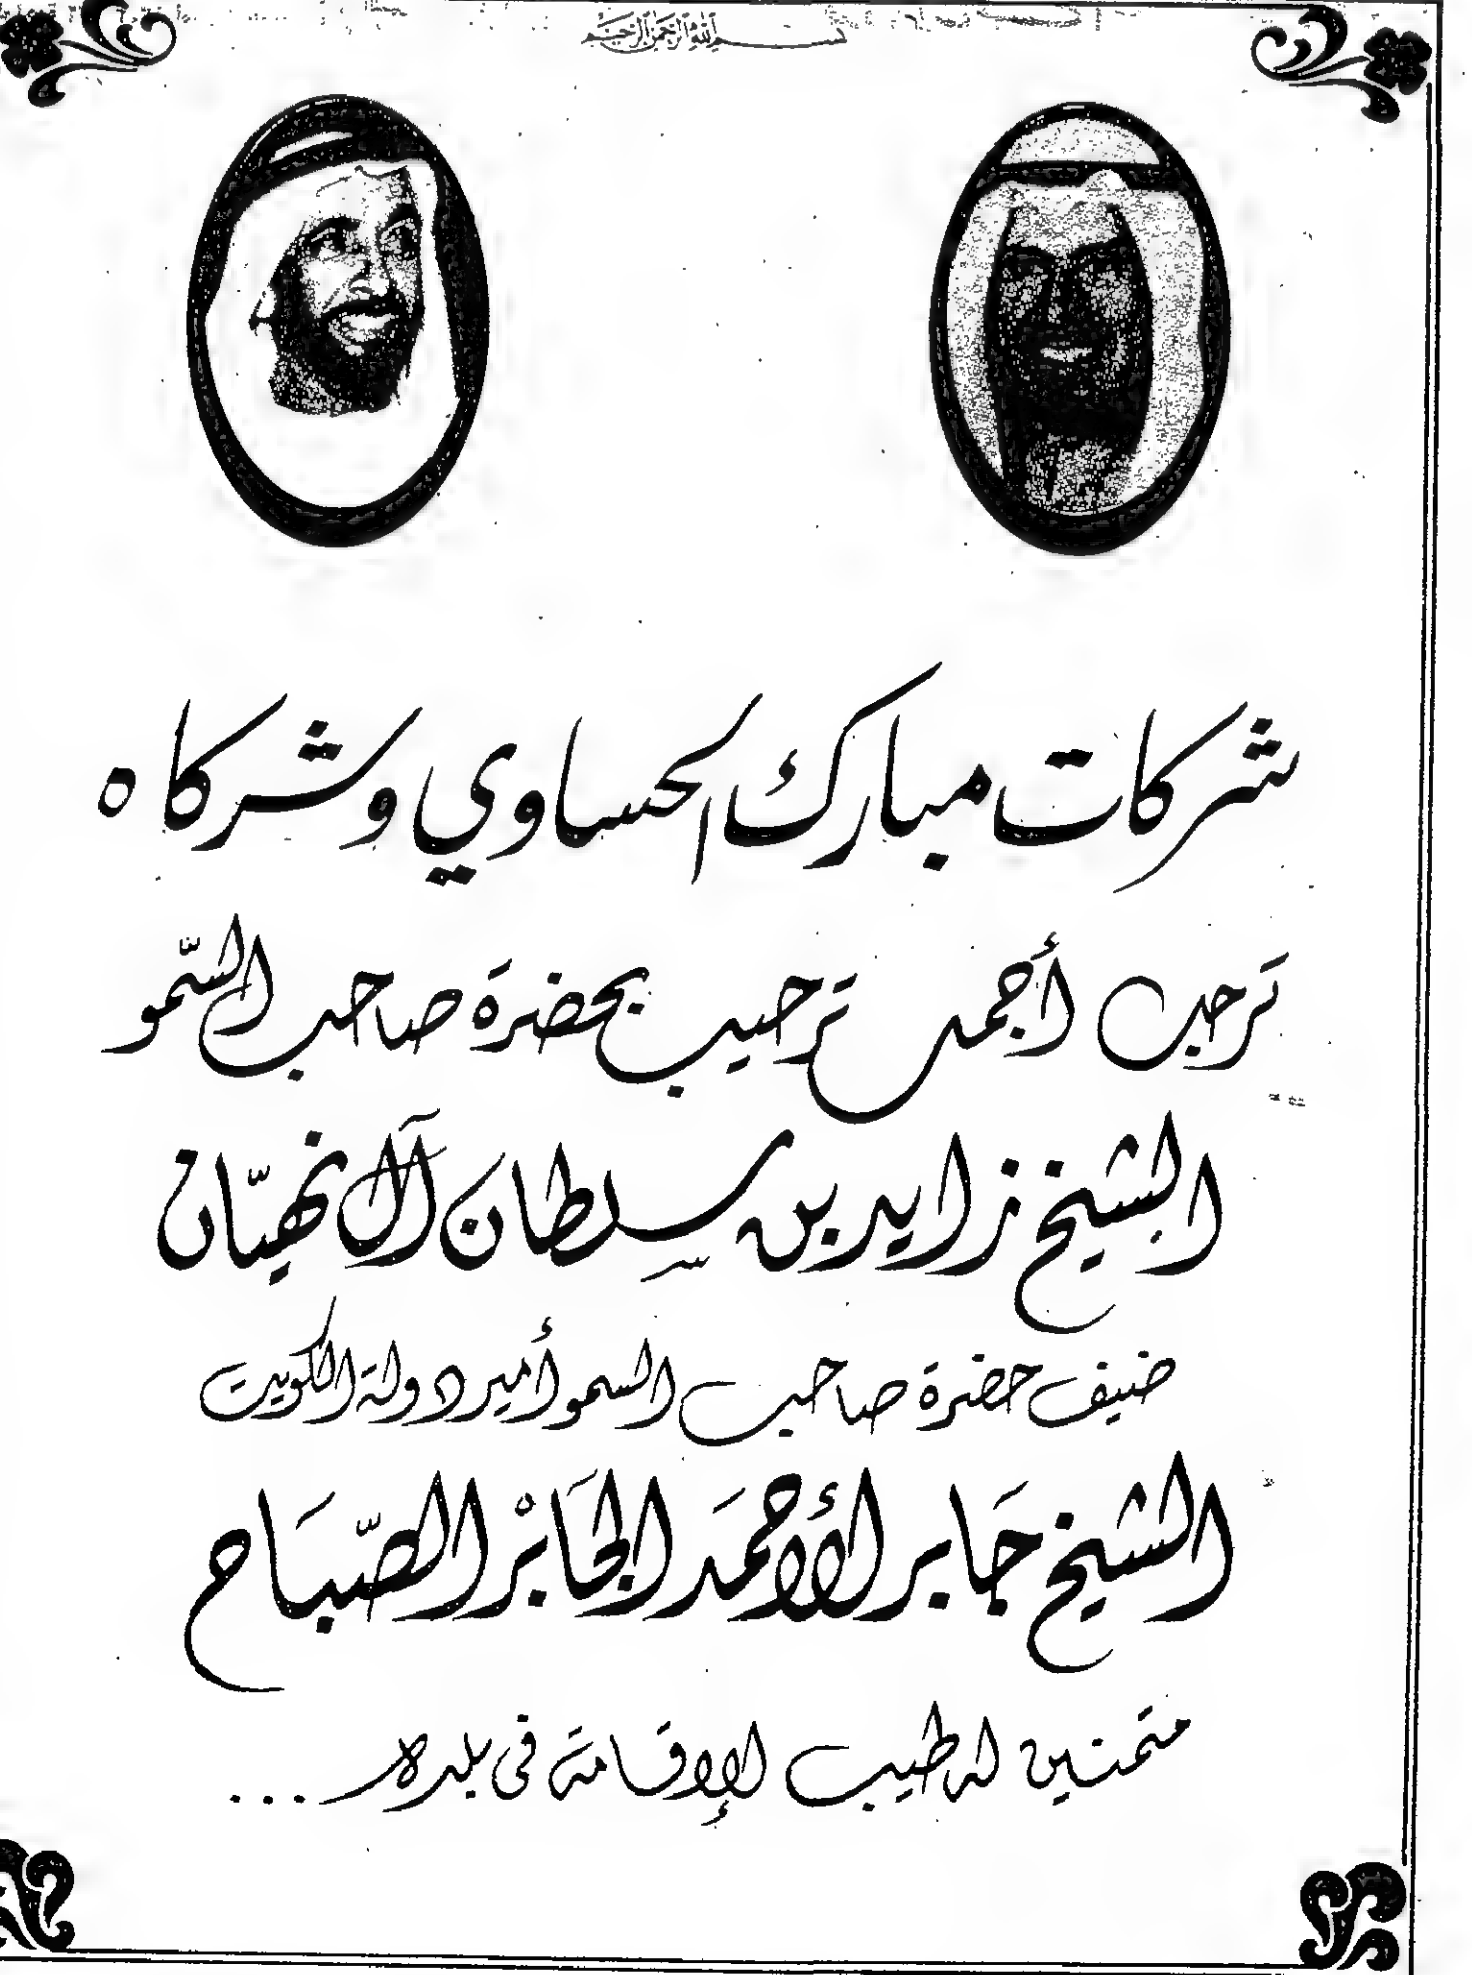 بسم الله الرحمن الرحيم
شركات مبارك الحساوي وشركاه
ترحب أجمل ترحيب بحضرة صاحب السّمو
الشيخ زايد بن سلطان آل نهيّان
ضيف حضرة صاحب السمو أمير دولة الكويت
الشيخ جَابر الأحمَد الجَابْر الصّبَاح
متمنين له طيب الإقامة في بلده ...